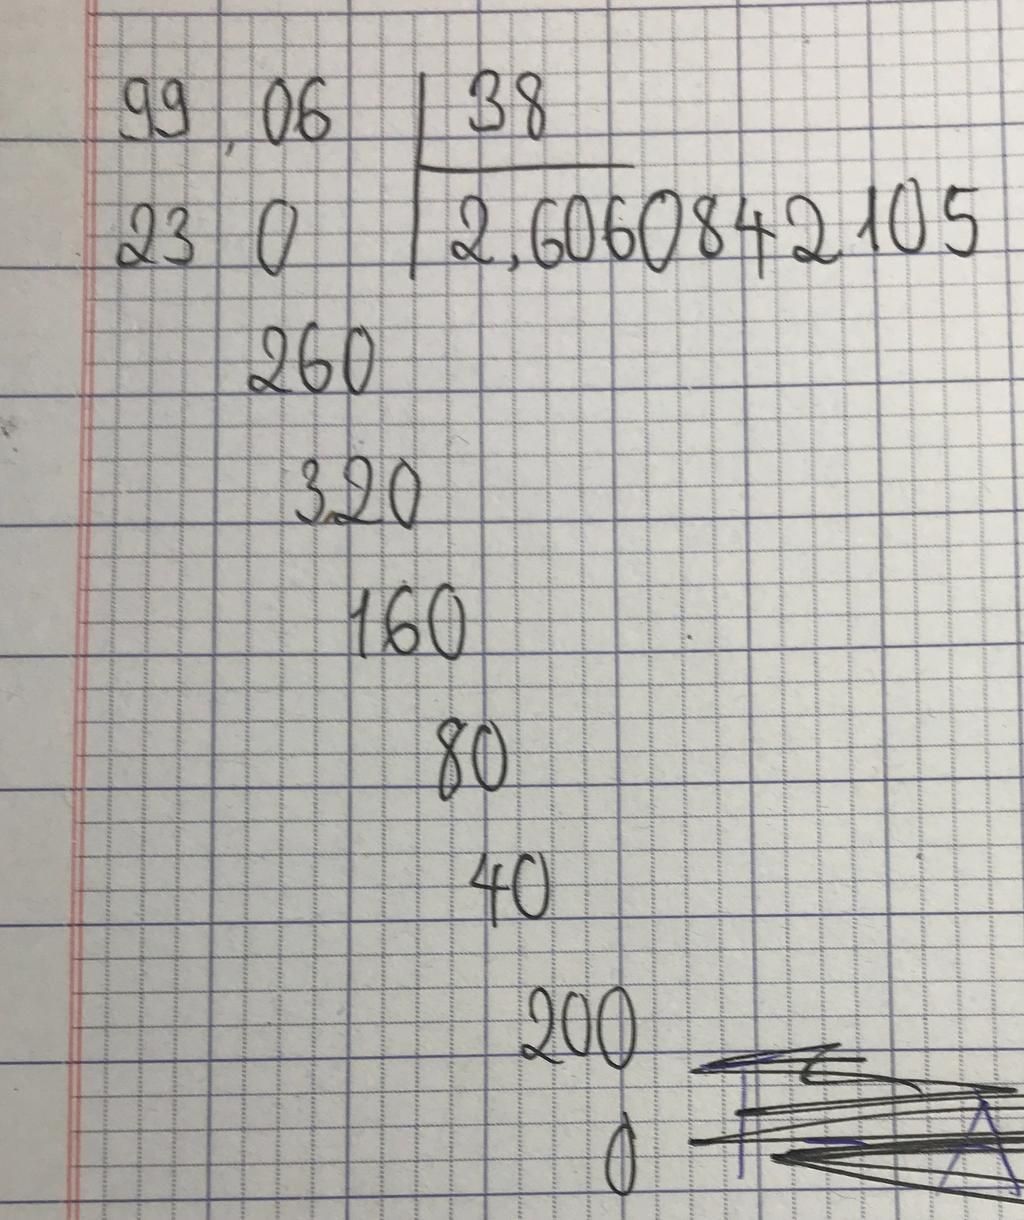 99,06 38
23 0 2,6060842105
260
320
160
80
40
200
0